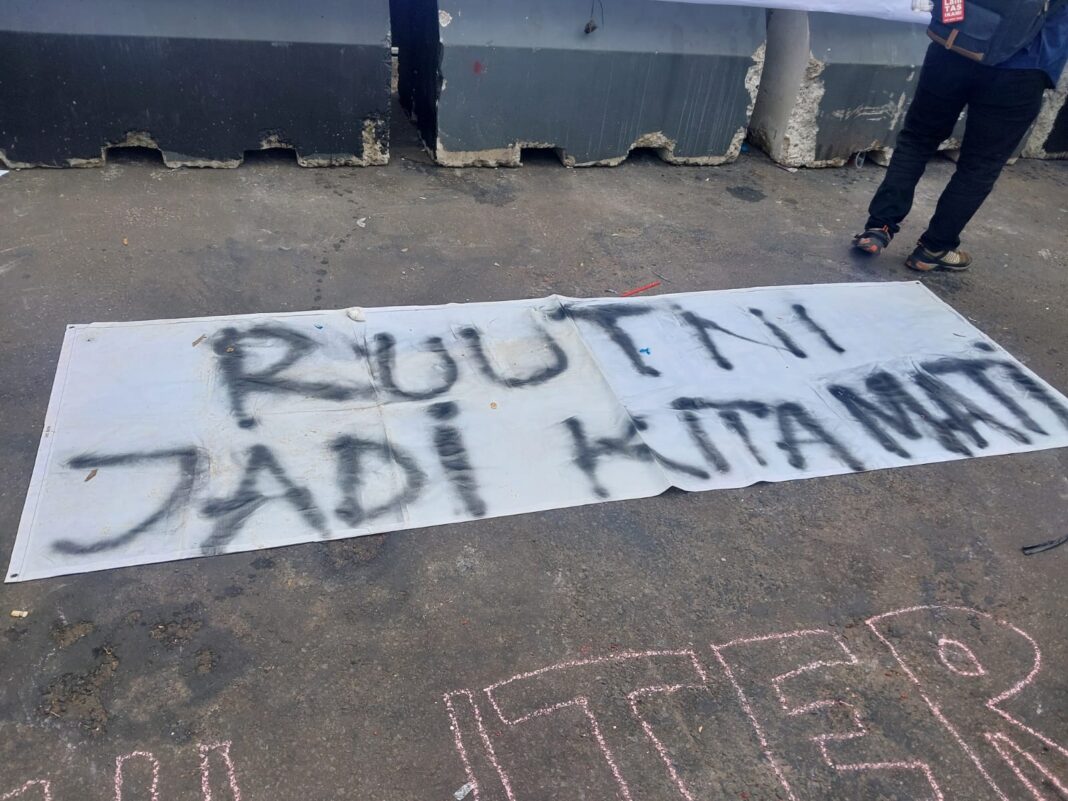 RUU TNI
JADi KITA MATi
ITER